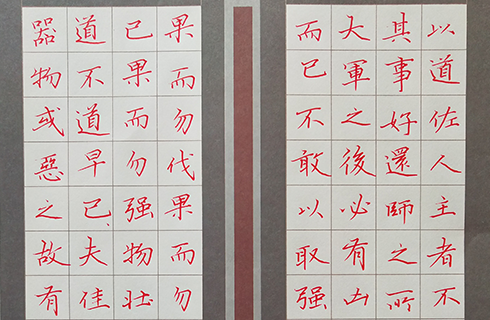 以道佐人主者不
其事好還師之所
大軍之後必有凶
而已不敢以取强
果而勿伐果而勿
已果而勿强物壯
道不道早已、夫佳
器物或惡之故有